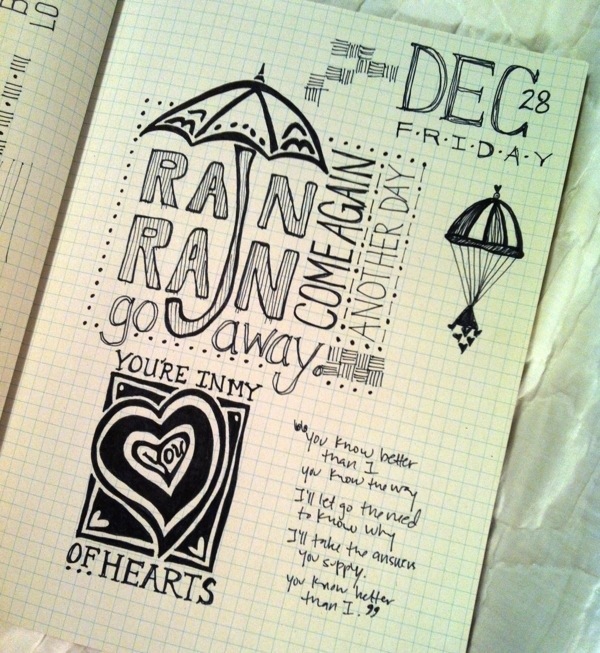 DEC 28
F·R·I·D·A·Y
RAIN
RAIN
go away.
COME AGAIN
ANOTHER DAY
YOU'RE IN MY
YOU
OF HEARTS
“you know better
than I
you know the way
I'll let go the need
to know why
I'll take the answers
you supply.
you know better
than I.”